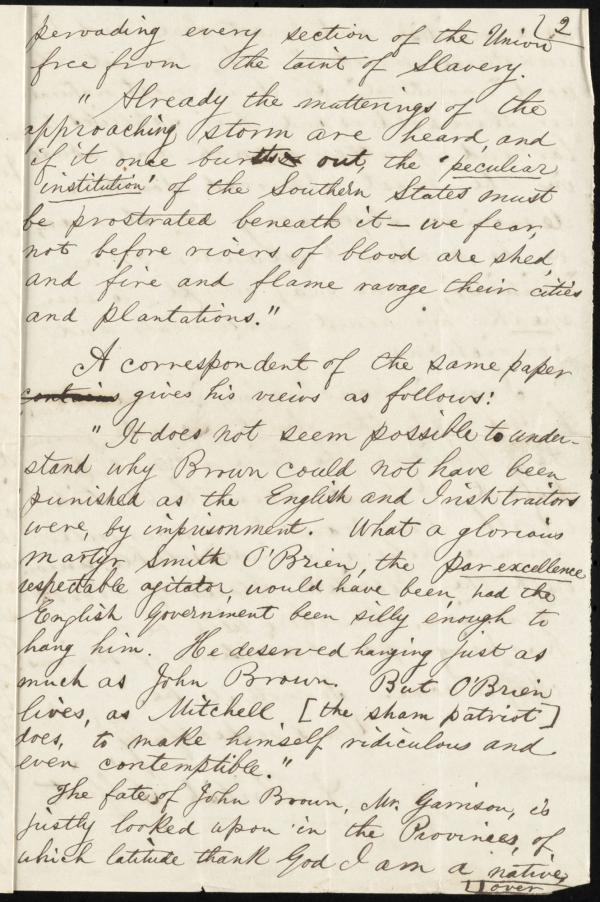 2
pervading every section of the Union
free from the taint of Slavery.
" Already the mutterings of the
approaching storm are heard, and
if it once bursts out, the 'peculiar
institution' of the Southern States must
be prostrated beneath it — we fear,
not before rivers of blood are shed,
and fire and flame ravage their cities
and plantations."
A correspondent of the same paper
contains gives his views as follows:
" It does not seem possible to under-
stand why Brown could not have been
punished as the English and Irish traitors
were, by imprisonment. What a glorious
martyr Smith O'Brien, the par excellence
respectable agitator, would have been, had the
English Government been silly enough to
hang him. He deserved hanging just as
much as John Brown. But O'Brien
lives, as Mitchell [the sham patriot]
does, to make himself ridiculous and
even contemptible."
The fate of John Brown, Mr. Garrison, is
justly looked upon in the Provinces, of
which latitude thank God I am a native,
over